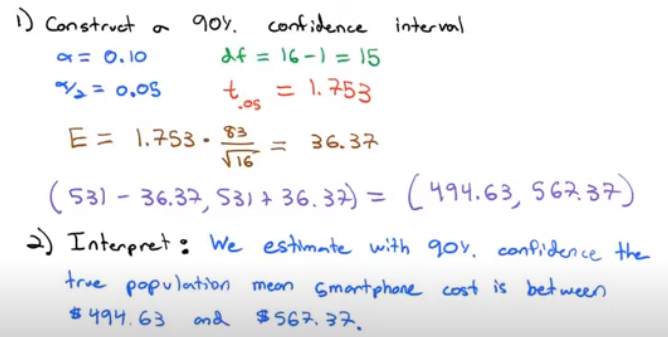 1) Construct a 90%. confidence interval
α = 0.10 df = 16-1 = 15
α/2 = 0.05 t.05 = 1.753
E = 1.753 · 83/√16 = 36.37
(531 - 36.37, 531 + 36.37) = (494.63, 567.37)
2) Interpret: We estimate with 90%. confidence the
true population mean smartphone cost is between
$494.63 and $567.37.